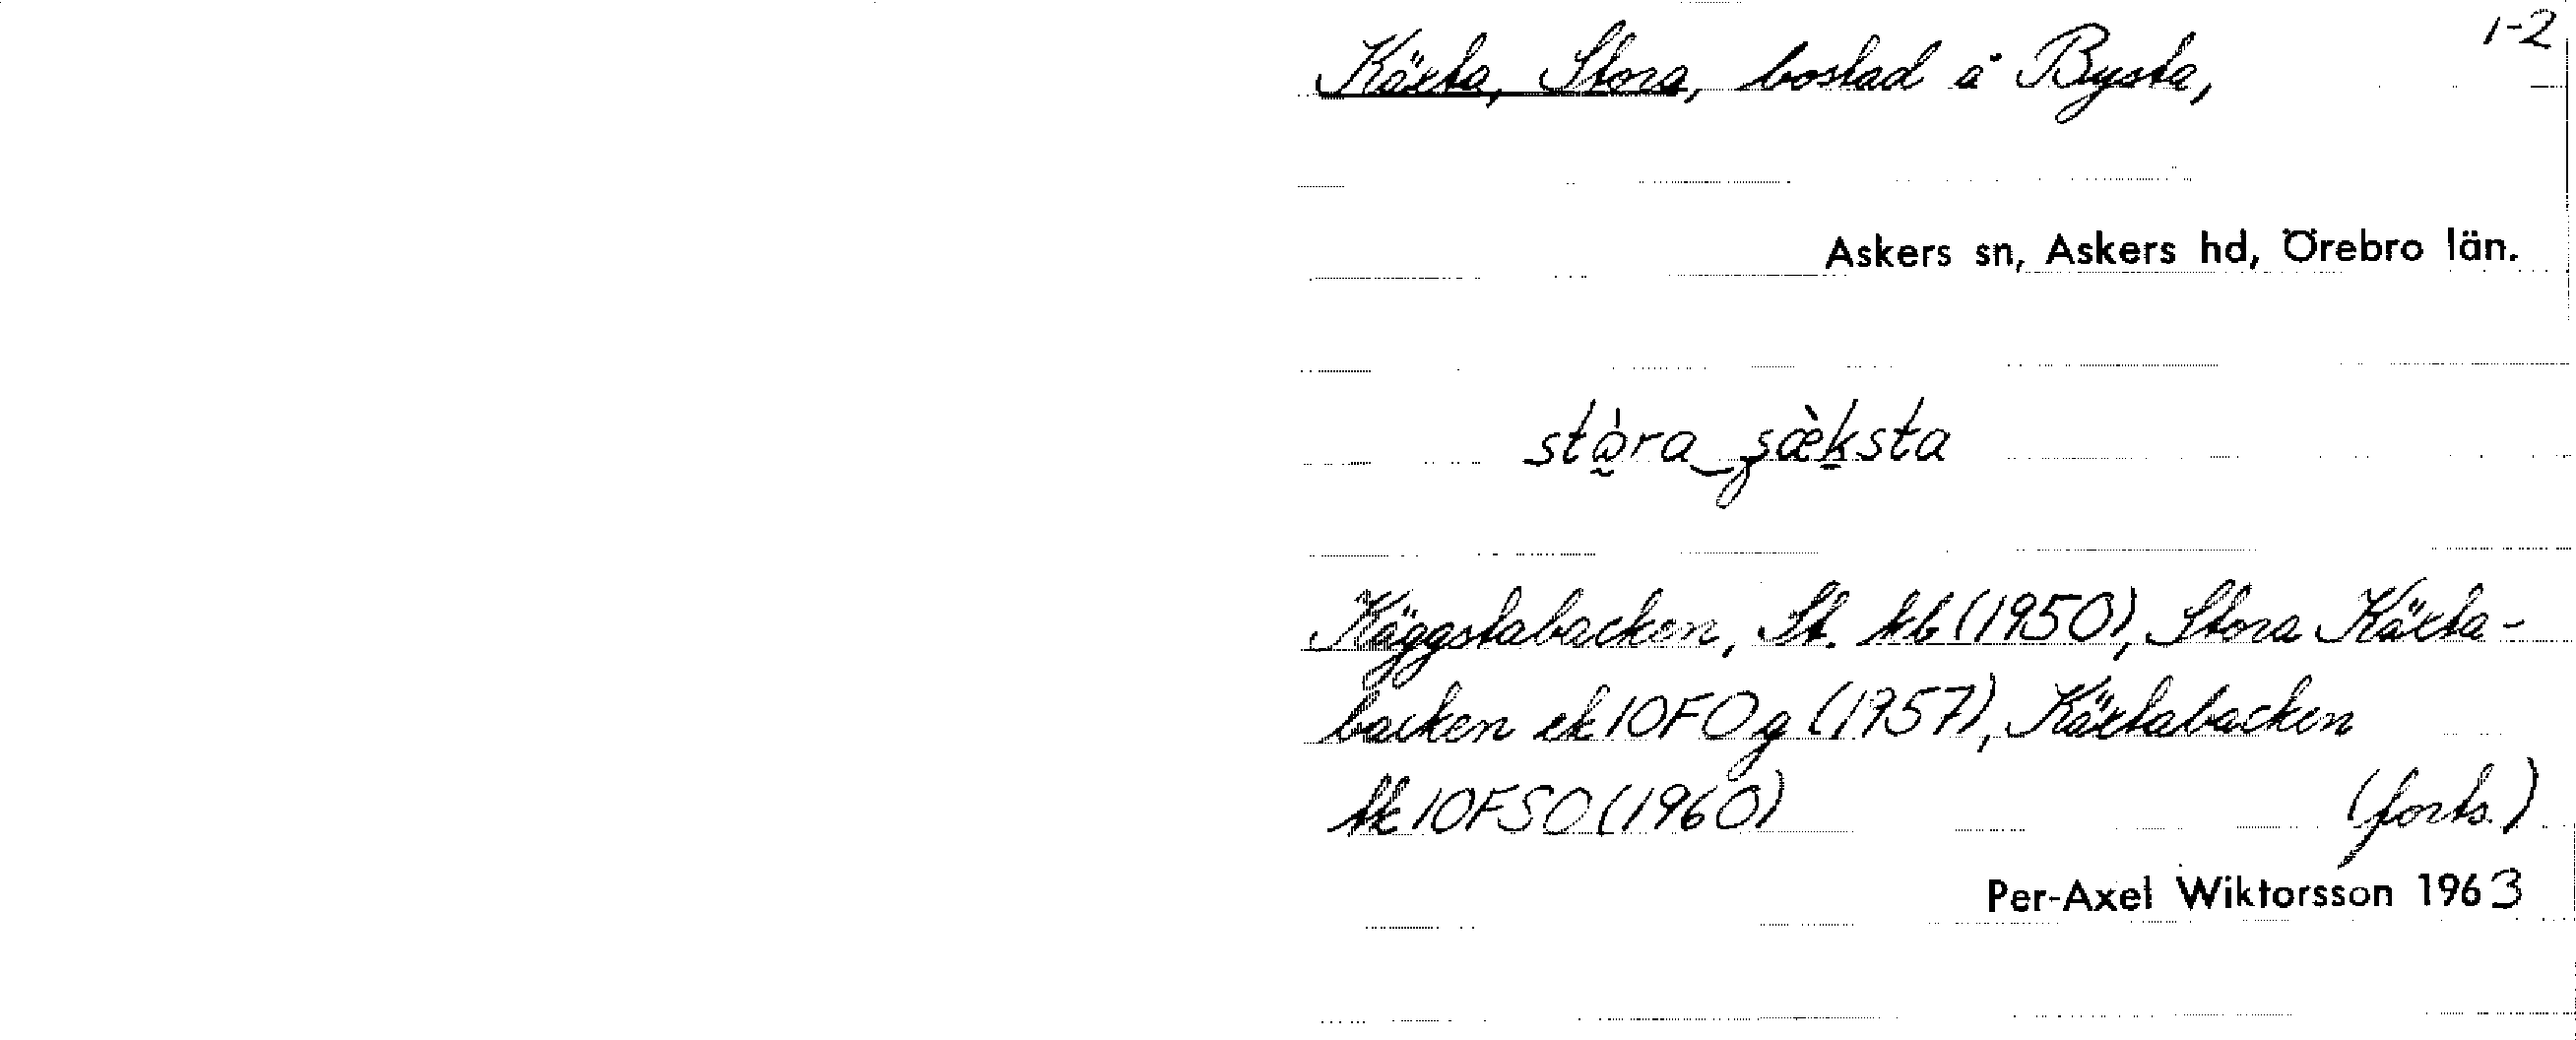 1-2
Käxta, Stora, bostad å Bysta,
Askers sn, Askers hd, Örebro län.
Käggstabacken, St. kb (1950), Stora Käxta-
backen ek 10F0g (1957), Käxtabacken
tk 10FSO (1960) (forts.)
Per-Axel Wiktorsson 1963